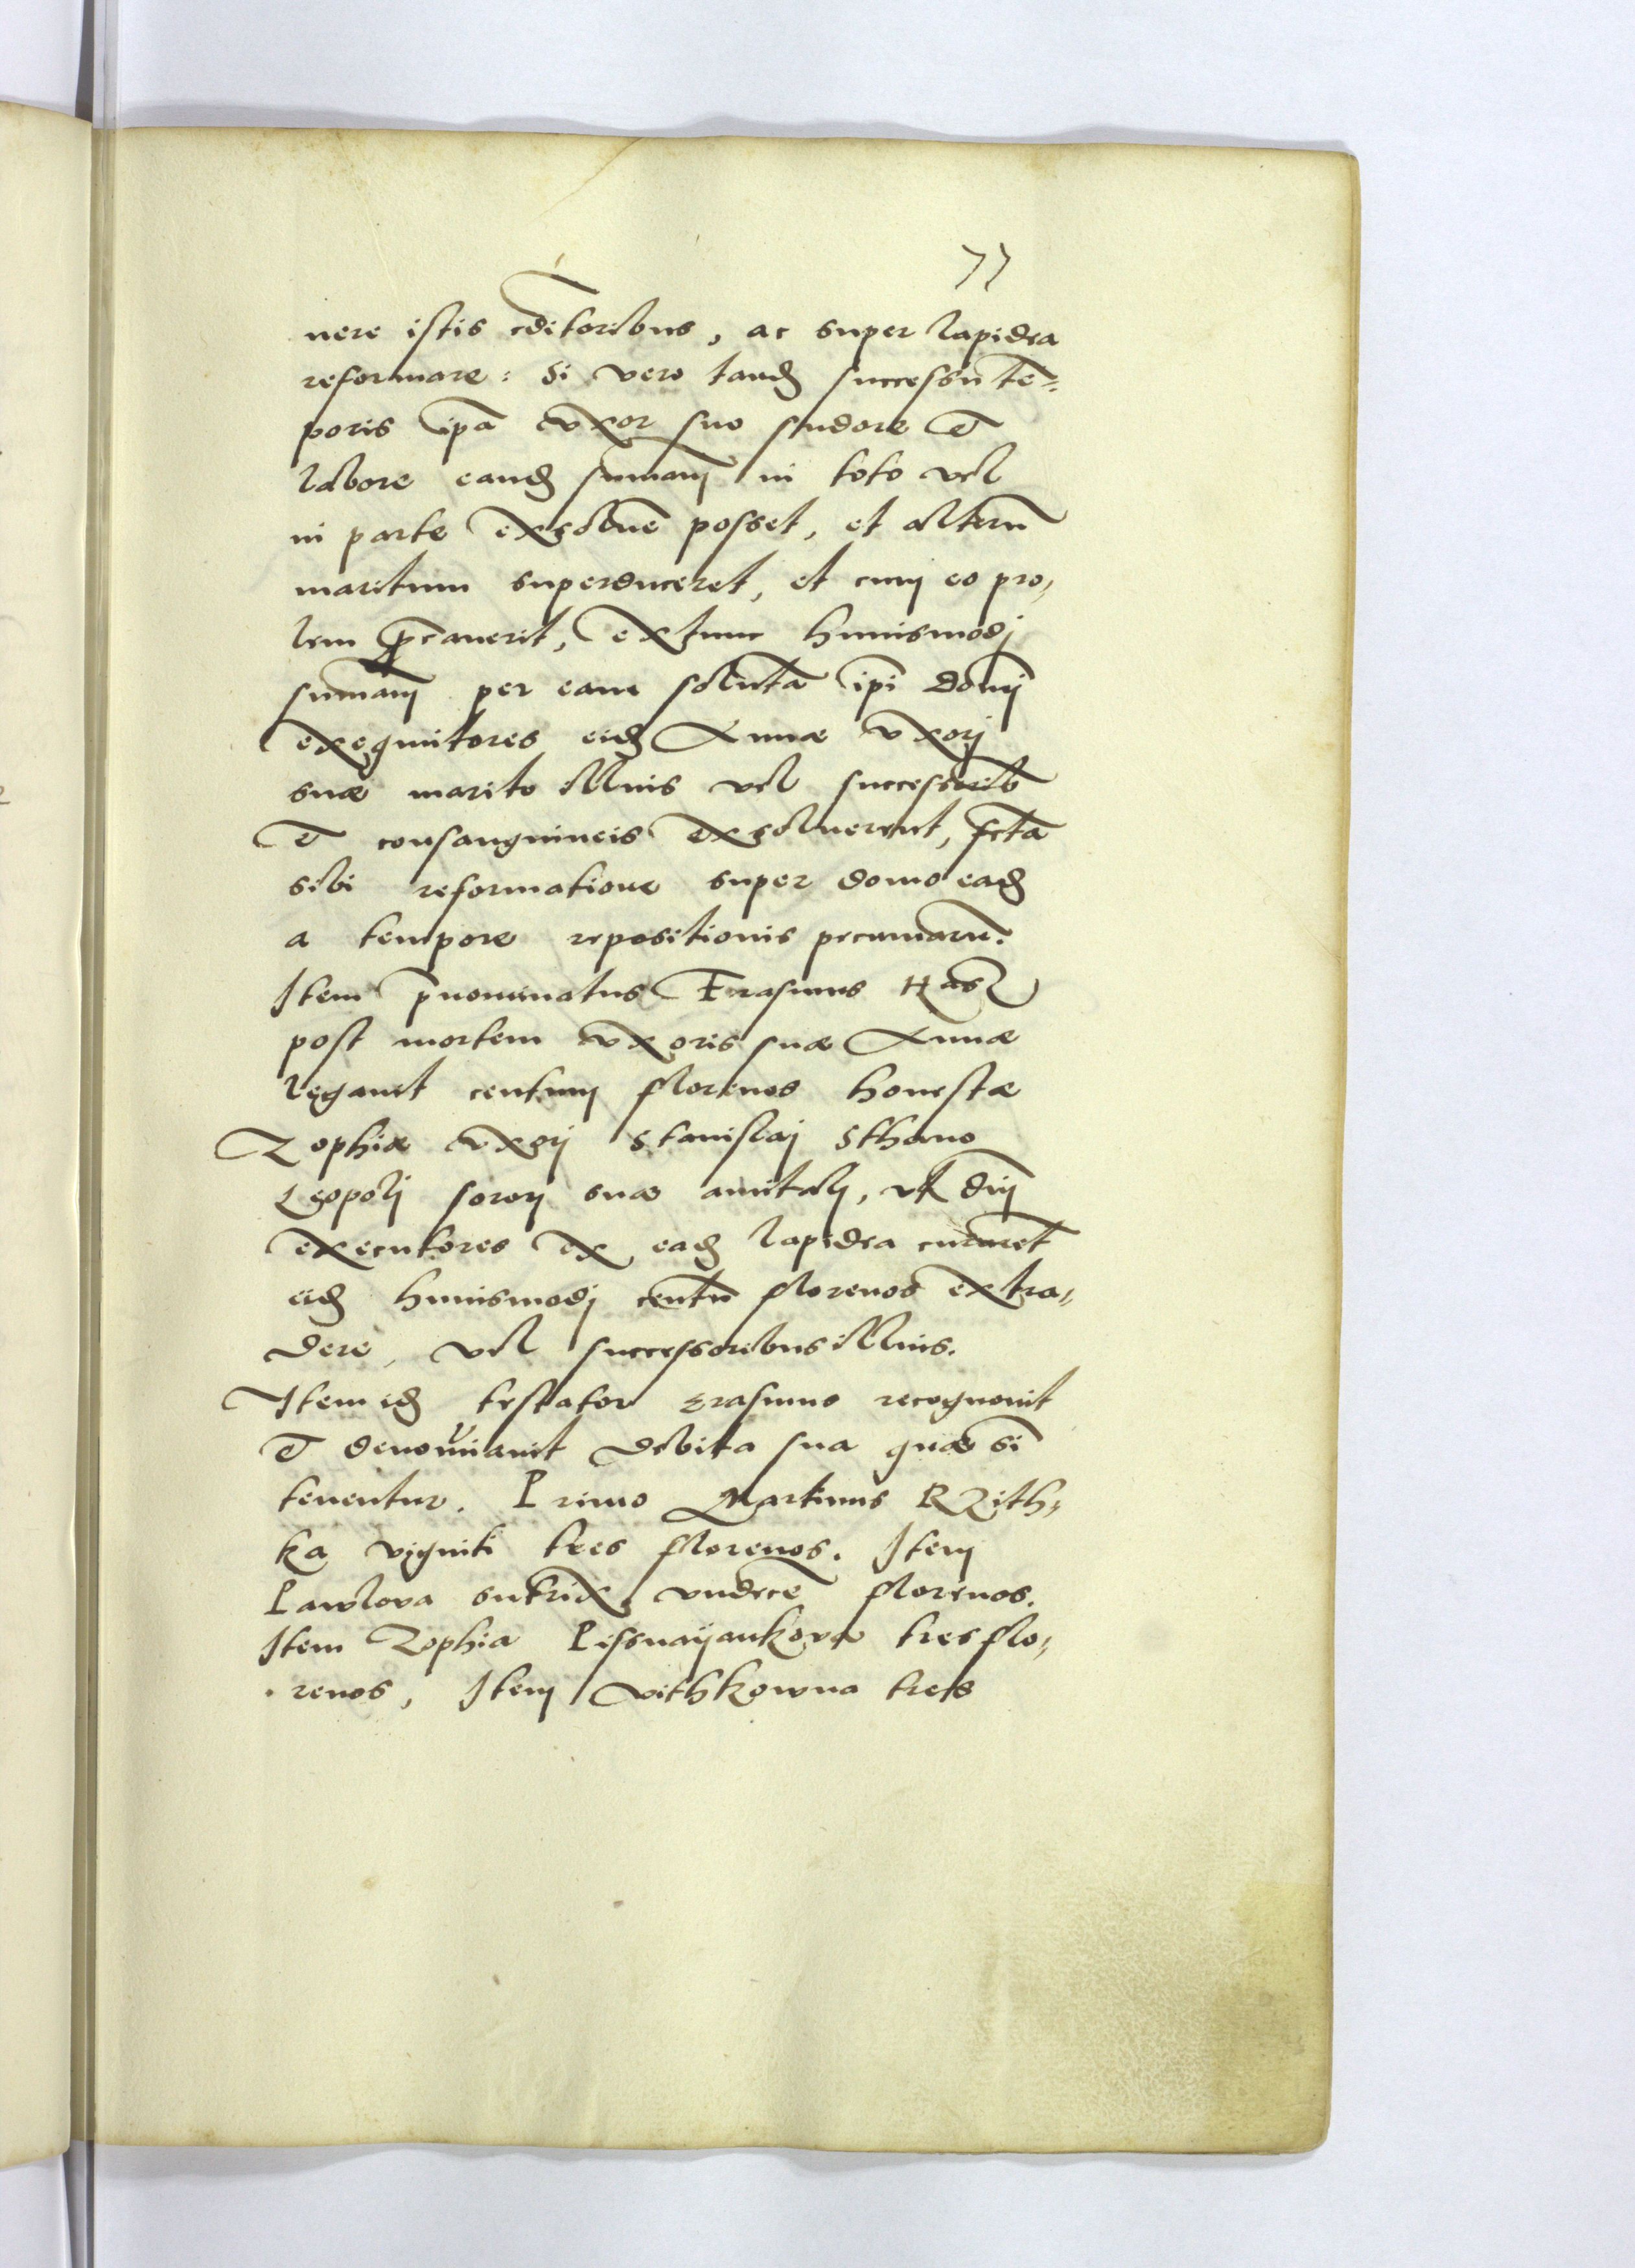 77
uere istis cditoribus, ac super lapidea
reformare: Si vero tandꝫ successu tē=
poris ipā vxor suo sudore et
labore eandꝫ sumam in toto vel
in parte exsoluē posset, et alterū
maritum superduceret, et cum eo pro,,
lem pcauerit, extunc huiusmodj
sumam per eam solutā ipī domj
exequutores eidꝫ Annæ vxorj
suæ marito illius vel successorib
et consanguineis exsoluerent, fctā
sibi reformatione super domo eadꝫ
a tempore repositionis pecuniarū.
Item p̄nominatus Erasmus Hasz
post mortem vxoris suæ Annæ
legauit centum florenos honestæ
Zophiæ vxorj Stanislaj
Leopolj sororj suæ amitalj, vt dnj
executores ex eadꝫ lapidea curarēt
eidꝫ huiusmodj centū florenos extra,,
dere, vel successoribus illius.
Item idꝫ testator Erasmus recognouit
et denominauit debita sua quæ si
tenentur. Primo Martinus Rzith,,
ka viginti tres florenos. Item
Pawlowa sutrix vndecē florenos.
Item Zophia tres flo,,
renos, Item Withkowna tres